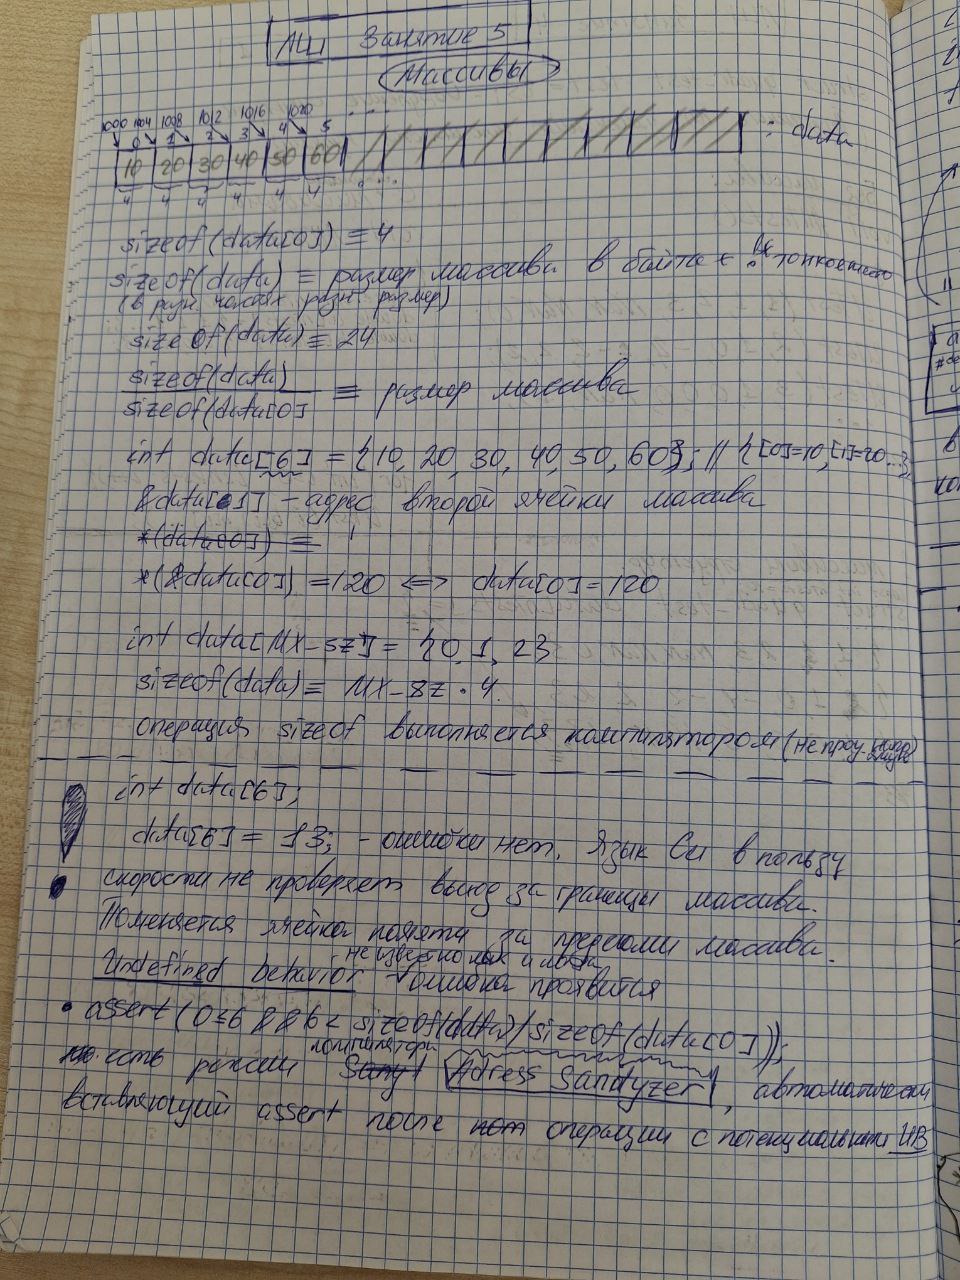 ЛШ Занятие 5
Массивы
1000 1004 1008 1012 1016 1020 ...
0 1 2 3 4 5
10 20 30 40 50 60 : data
4 4 4 4 4 4 ...
sizeof(data[0]) ≡ 4
sizeof(data) ≡ размер массива в байтах
(в разн. компах разн. размер)
sizeof(data) ≡ 24
sizeof(data)
sizeof(data[0] ≡ размер массива
int data[6] = {10, 20, 30, 40, 50, 60}; // {[0]=10, [1]=20...};
&data[1] - адрес второй ячейки массива
*(data[0]) ≡
*(&data[0]) = 120 <=> data[0] = 120
int data[MX-SZ] = {0, 1, 2}
sizeof(data) ≡ MX-SZ · 4
операция sizeof выполняется компилятором (не
int data[6];
data[6] = 13; - ошибки нет. Язык Си в пользу
скорости не проверяет выход за границы массива.
Поменяется ячейка памяти за пределами массива.
неизвестно как и когда
Undefined behavior ошибка проявится
• assert (0≤6 && 6 < sizeof(data)/sizeof(data[0]));
компилятора
есть режим Adress Sandyzer, автоматически
вставляющий assert после операции с потенциальным UB